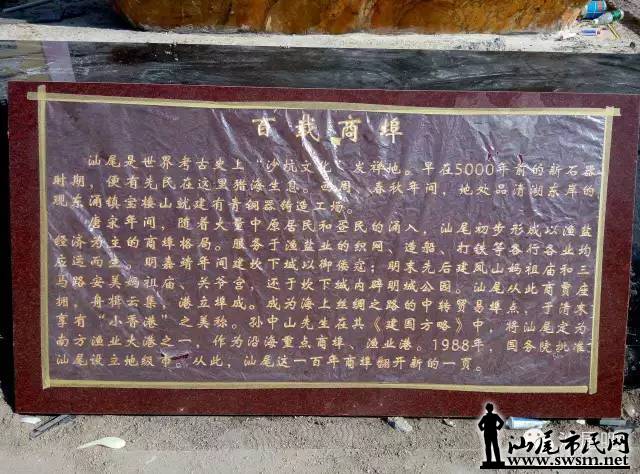 百载商埠
汕尾是世界考古史上“沙坑文化”发祥地。早在5000年前的新石器
时期,便有先民在这里猎海生息。西周、春秋年间,地处品清湖东岸的
观东涌镇宝楼山就建有青铜器铸造工场。
唐宋年间,随着大量中原居民和疍民的涌入,汕尾初步形成以渔盐
经济为主的商埠格局。服务于渔盐业的织网、造船、打铁等各行各业均
应运而生。明嘉靖年间建坎下城以御倭寇;明末先后建凤山妈祖庙和三
马路安美妈祖庙、关爷宫,还于坎下城内辟明城公园。汕尾从此商贾
拥,舟楫云集,港立埠成。成为海上丝绸之路的中转贸易埠点,于清末
享有“小香港”之美称。孙中山先生在其《建国方略》中,将汕尾定为
南方渔业大港之一,作为沿海重点商埠、渔业港。1988年,国务院批准
汕尾设立地级市。从此,汕尾这一百年商埠翻开新的一页。
汕尾市民网
www.swsm.net